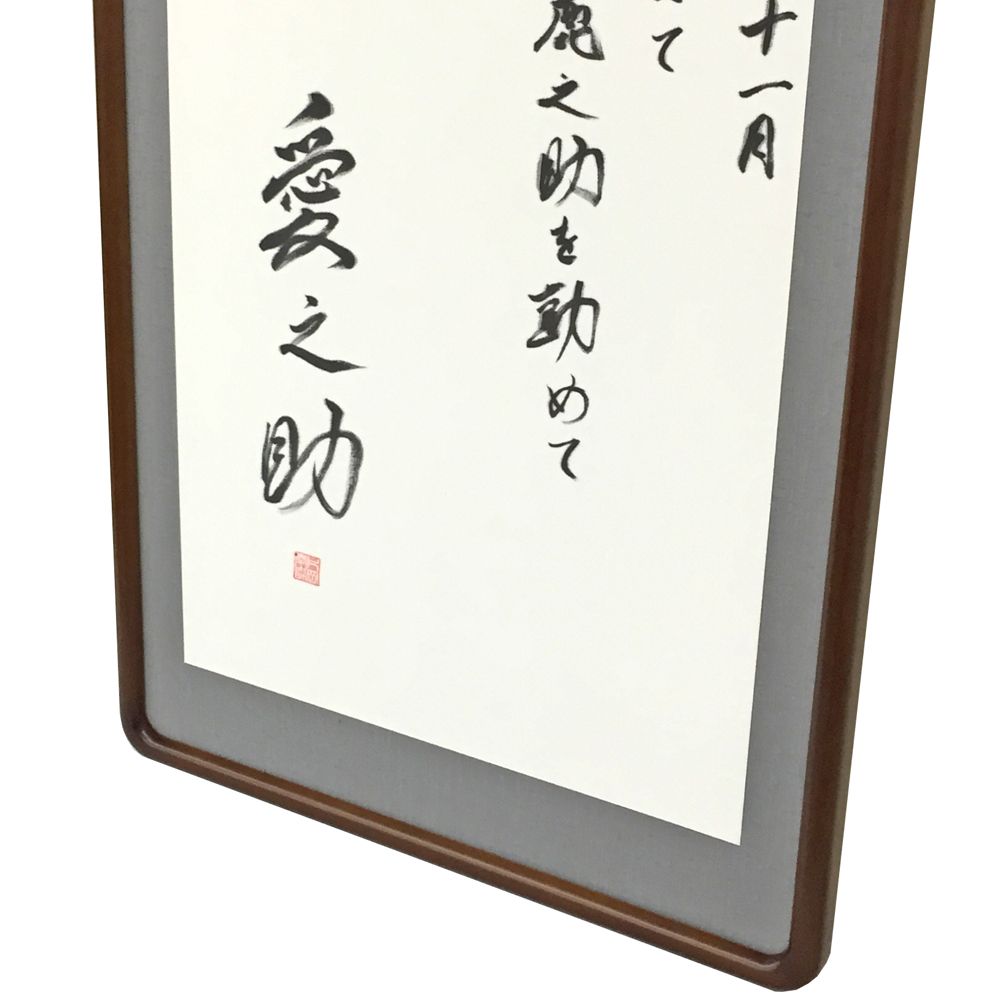 十一月
て
鹿之助を勤めて
愛之助